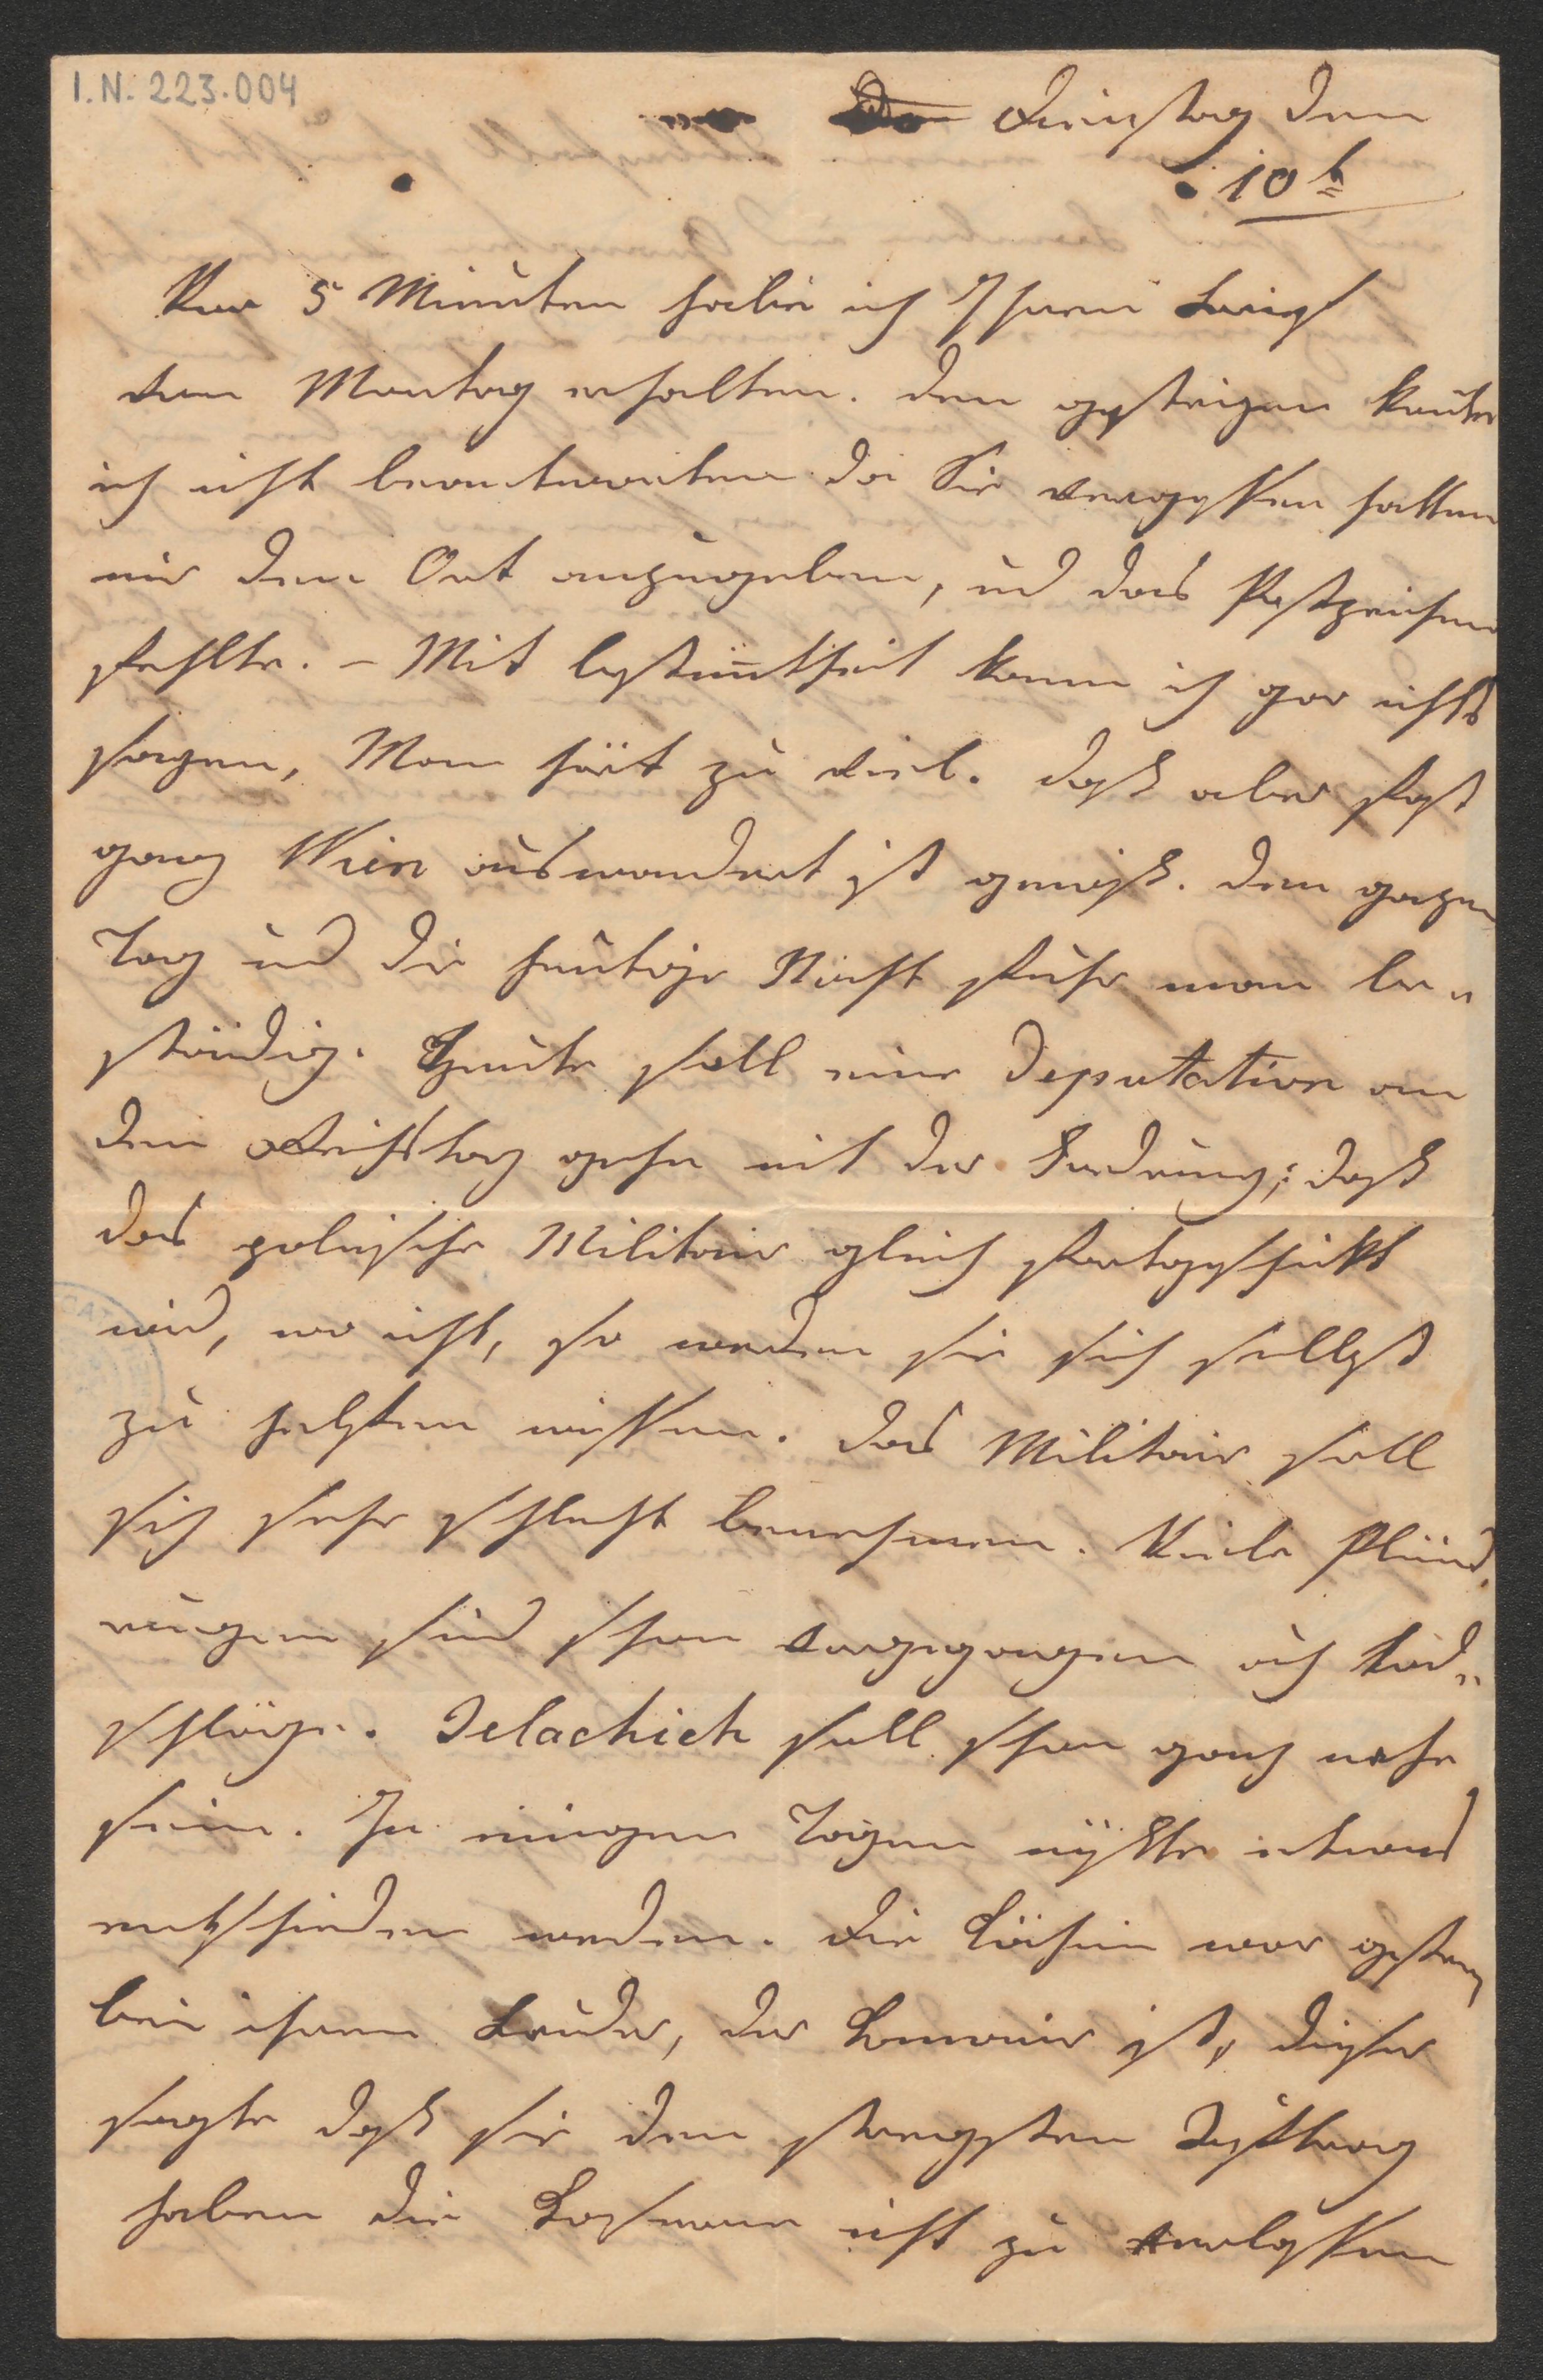 I.N. 223.004
Dienstag den
10t
Vor 5 Minuten habe ich Ihren Brief
vom Montag erhalten. Den gestrigen konte
ich nicht beantworten da Sie vergessen hatten
mir den Ort anzugeben, und das Postzeichen
fehlte. – Mit bestimtheit kann ich gar nichts
sagen, Man hört zu viel. Daß aber fast
ganz Wien auswandert ist gewiß. Den ganzen
Tag und die heutige Nacht fuhr man be„
ständig. Heute soll eine Deputation an
den Reichstag gehn mit der Fordrung; daß
das polnische Militair gleich fortgeschickt
wird, wo nicht, so werden sie sich selbst
zu helfen wissen. Das Militair soll
sich sehr schlecht benehmen. Viele Plünd„
rungen sind schon vorgegangen auch Tod„
schläge. Jelachich soll schon ganz nahe
sein. In einigen Tagen müßte etwas
entschieden werden. Die Köchin war gestern
bei ihrem Bruder, der ist, dieser
sagte daß sie den strengsten
haben die nicht zu verlassen